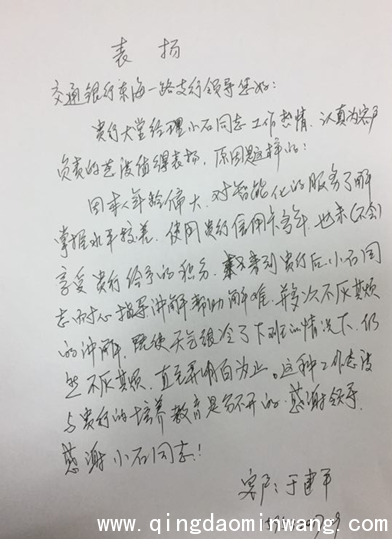 表扬
交通银行东海一路支行领导您好:
贵行大堂经理小石同志工作热情、认真为客户
负责的态度值得表扬,原因是这样的:
因本人年龄偏大,对智能化的服务了解
掌握水平较差。使用贵行信用卡多年,也未(不会)
享受贵行给予的积分。找到贵行后小石同
志耐心指导讲解帮助解难,并多次不厌其烦
的讲解,既使天气很冷了下班的情况下,仍
然不厌其烦,直至弄明白为止。这种工作态度
与贵行的培养教育是分不开的,感谢领导
感谢小石同志!
客户:于建平
www.qingdaominwang.com